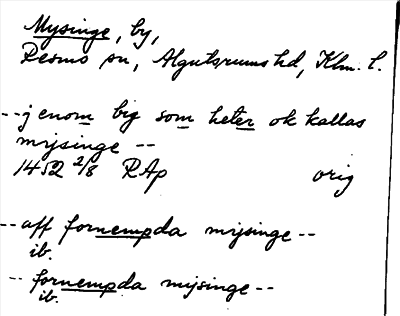 Mysinge, by,
Resmo sn, Algutsrums hd, Klm. l.
--j enom big som heter ok kallas
mysinge --
1452 2/8 RAp orig
-- aff fornempda mysinge --
ib.
-- fornempda mysinge --
ib.